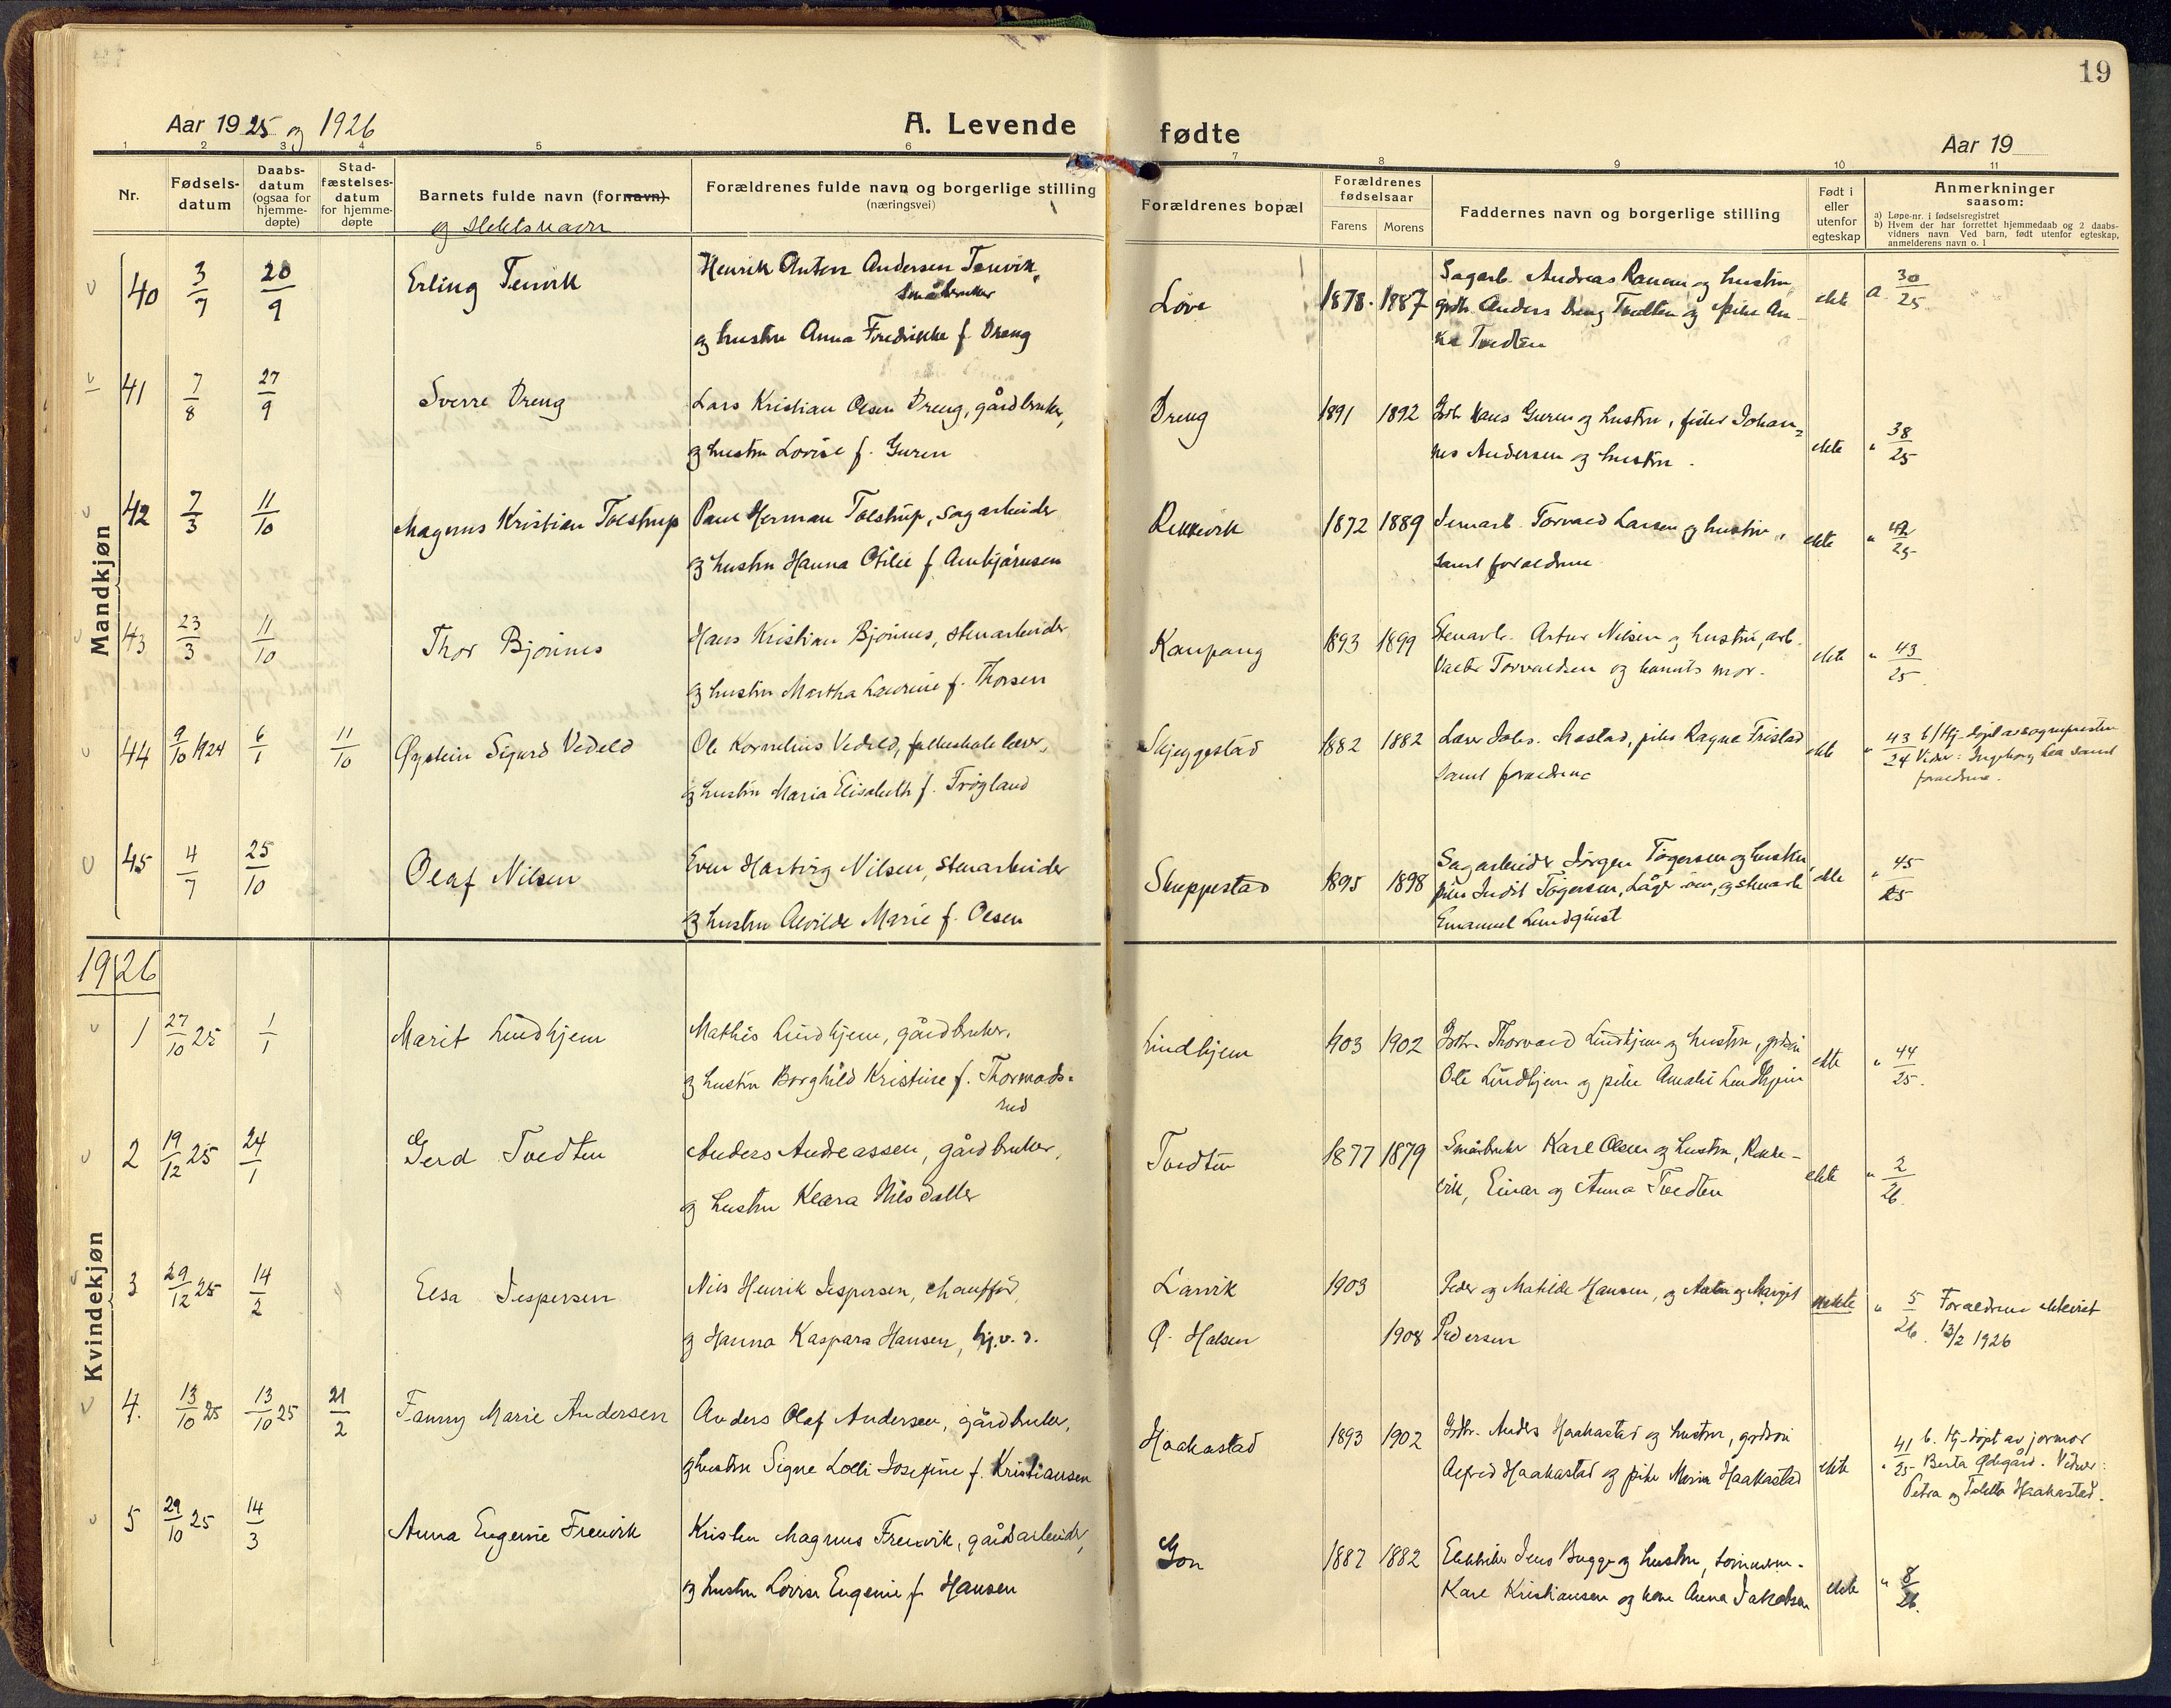 19
Aar 1925 og 1926
A. Levende fødte
Aar 19
1 2 3 4 5 6 7 8 9 10 11
Nr.
Fødsels-
datum
Daabs-
datum
(ogsaa for
hjemme-
døpte)
Stad-
fæstelses-
datum
for hjemme-
døpte
Barnets fulde navn (fornavn)
og slektsnavn
Forældrenes fulde navn og borgerlige stilling
(næringsvei)
Forældrenes bopæl
Forældrenes
fødselsaar
Farens Morens
Faddernes navn og borgerlige stilling
Født i
eller
utenfor
egteskap
Anmerkninger
saasom:
a) Løpe-nr. i fødselsregistret
b) Hvem der har forrettet hjemmedaab og 2 daabs-
vidners navn Ved barn, født utenfor egteskap,
anmelderens navn o. l
Mandkjøn
40 3/7 20/9 Erling Tenvik Henrik Anton Andersen Tenvik,
Småbruker
og hustru Anna Fredrikke f. Dreng
Løve 1878. 1887 Sagarb. Andreas Ranum og hustru,
grdbr. Anders Dreng Tvedten og pike An-
na Tvedten
ekte a. 30/25
41 7/8 27/9 Sverre Dreng Lars Kristian Olsen Dreng, gårdbruker,
og hustru Lovise f. Guren
Dreng 1891 1892 Grdbr. Hans Guren og hustru, fisker Johan-
nes Andersen og hustru.
ekte " 38/25
42 7/3 11/10 Magnus Kristian Tolstrup Paul Herman Tolstrup, sagarbeider
og hustru Hanna Otilie f. Arnbjørnsen
Rekkevik 1872 1889 Jernarb. Torvald Larsen og hustru,
samt foraeldrene
ekte " 42/25
43 23/3 11/10 Thor Bjønnes Hans Kristian Bjønnes, stenarbeider
og hustru Martha Laurine f. Thorsen
Kaupang 1893 1899 Stenarb. Artur Nilsen og hustru, arb.
Torvaldsen og barnets mor.
ekte " 43/25
44 9/10 1924 6/1 11/10 Øystein Sigurd Vedeld Ole Kornelius Vedeld, folkeskolelærer,
og hustru Maria Elisabeth f. Frøyland
Skjeggestad 1882 1882 Lærer Johs. Mastad, pike Ragna Fristad
samt foraeldrene
ekte " 43/24 b/ Hj. døpt av sognepresten
Vidner: Ingeborg Lea samt
foraeldrene.
45 4/7 25/10 Olaf Nilsen Even Hartvig Nilsen, stenarbeider
og hustru Alvilde Marie f. Olsen
Skuppestad 1895 1898 Sagarbeider Jørgen Tøgersen og hustru
pike Judit Tøgersen, og stenarb
Emanuel Lundquist
ekte " 45/25
1926
Kvindekjøn
1 27/10 25 1/1 Marit Lindhjem Mathis Lindhjem, gårdbruker,
og hustru Borghild Kristine f. Thormods-
rud
Lindhjem 1903 1902 Grdbr. Thorvald Lindhjem og hustru, grdsøn
Ole Lindhjem og pike Amalie Lindhjem
ekte " 44/25.
2 19/12 25 24/1 Gerd Tvedten Anders Andreassen, gårdbruker,
og hustru Klara Nilsdatter
Tvedten 1877 1879 Småbruker Karl Olsen og hustru, Rekke-
vik, Einar og Anna Tvedten
ekte " 2/26.
3 29/12 25 14/2 Elsa Jespersen Nils Henrik Jespersen, chauffør,
og Hanna Kaspara Hansen, hj.v. d.
Larvik 1903
Ø. Halsen 1908
Peder og Matilde Hansen, og Anton og Margit
Pedersen
uekte " 5/26. Foraeldrene ekteviet
13/2 1926
4. 13/10 25 13/10 25 21/2 Fanny Marie Andersen Anders Olaf Andersen, gårdbruker,
og hustru Signe Lolli Josefine f. Kristiansen
Haakastad 1893 1902 Grdbr. Anders Haakastad og hustru, grdsøn
Alfred Haakastad og pike Maria Haakastad
ekte " 41/25 b. Hj. døpt av jormor
Berta Ødegård. Vidner:
Petra og Haakastad.
5 29/10 25 14/3 Anna Eugenie Freuvik Kristen Magnus Freuvik, gårdsarbeider,
og hustru Lovise Eugenie f. Hansen
Gon 1887 1882 Elektriker Jens Bugge og hustru, tømmerm.
Karl Kristiansen og kone Anna Jakobsen
ekte " 8/26.